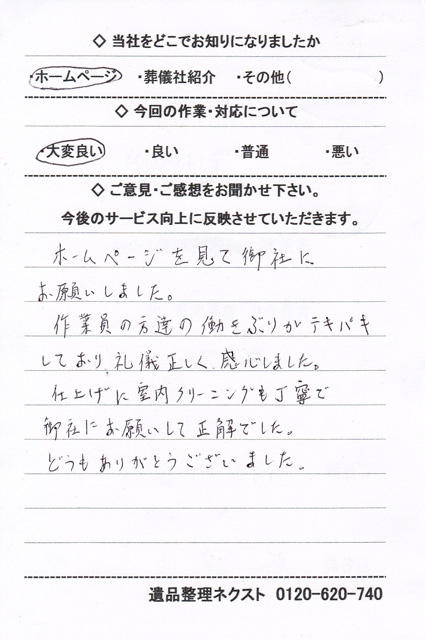 ◇ 当社をどこでお知りになりましたか
・ホームページ ・葬儀社紹介 ・その他( )
◇ 今回の作業・対応について
・大変良い ・良い ・普通 ・悪い
◇ ご意見・ご感想をお聞かせ下さい。
今後のサービス向上に反映させていただきます。
ホームページを見て御社に
お願いしました。
作業員の方達の働きぶりがテキパキ
しており、礼儀正しく感心しました。
仕上げに室内クリーニングも丁寧で
御社にお願いして正解でした。
どうもありがとうございました。
遺品整理ネクスト 0120-620-740